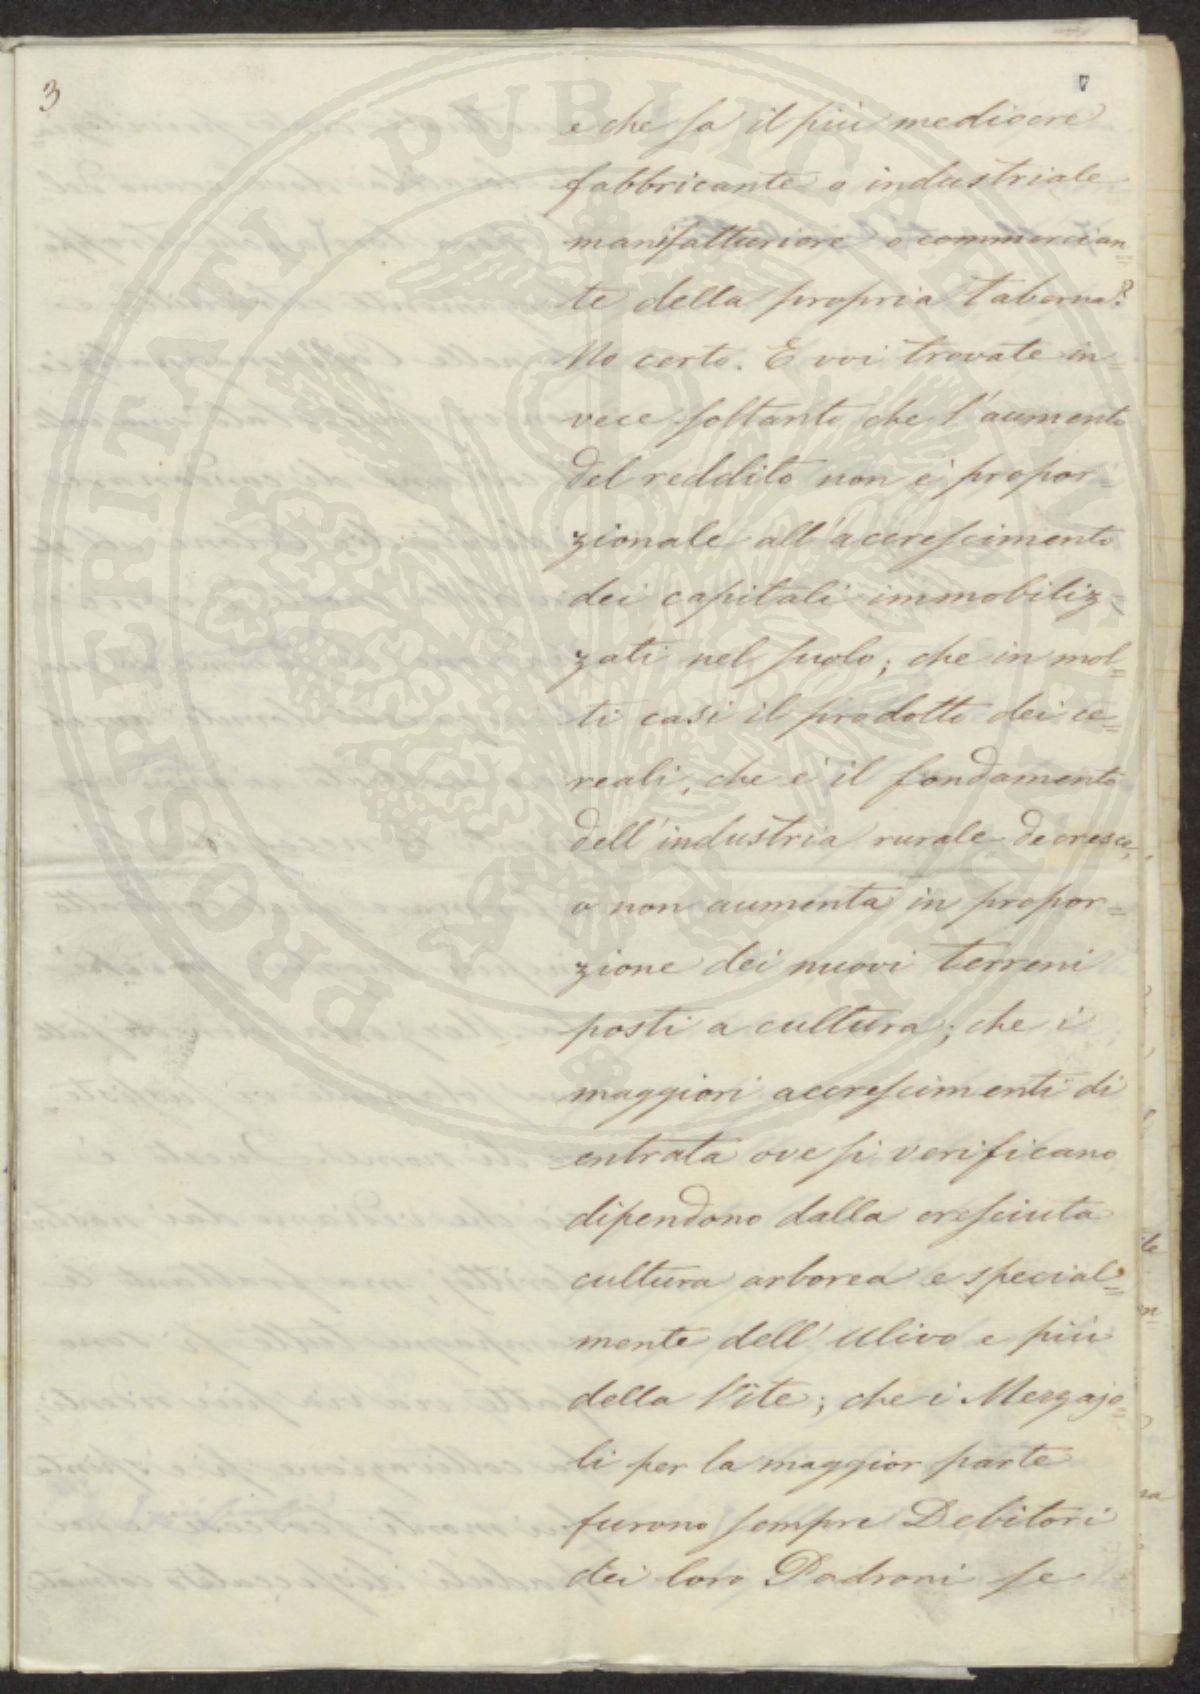 3
e che fa il più mediocre
fabbricante o industriale
manifatturiere o commercian=
te della propria taberna?
No certo. E voi trovate in=
vece soltanto che l'aumento
del reddito non è propor=
zionale all'accrescimento
dei capitali immobiliz=
zati nel suolo; che in mol=
ti casi il prodotto dei ce=
reali, che è il fondamento
dell'industria rurale decresce,
o non aumenta in propor=
zione dei nuovi terreni
posti a cultura; che i
maggiori accrescimenti di
entrata ove si verificano
dipendono dalla cresciuta
cultura arborea e special=
mente dell'Ulivo e più
della Vite; che i Mezzajo=
li per la maggior parte
furono sempre Debitori
dei loro Padroni se
PROSPERITATI PVBLICAE AVGENDAE